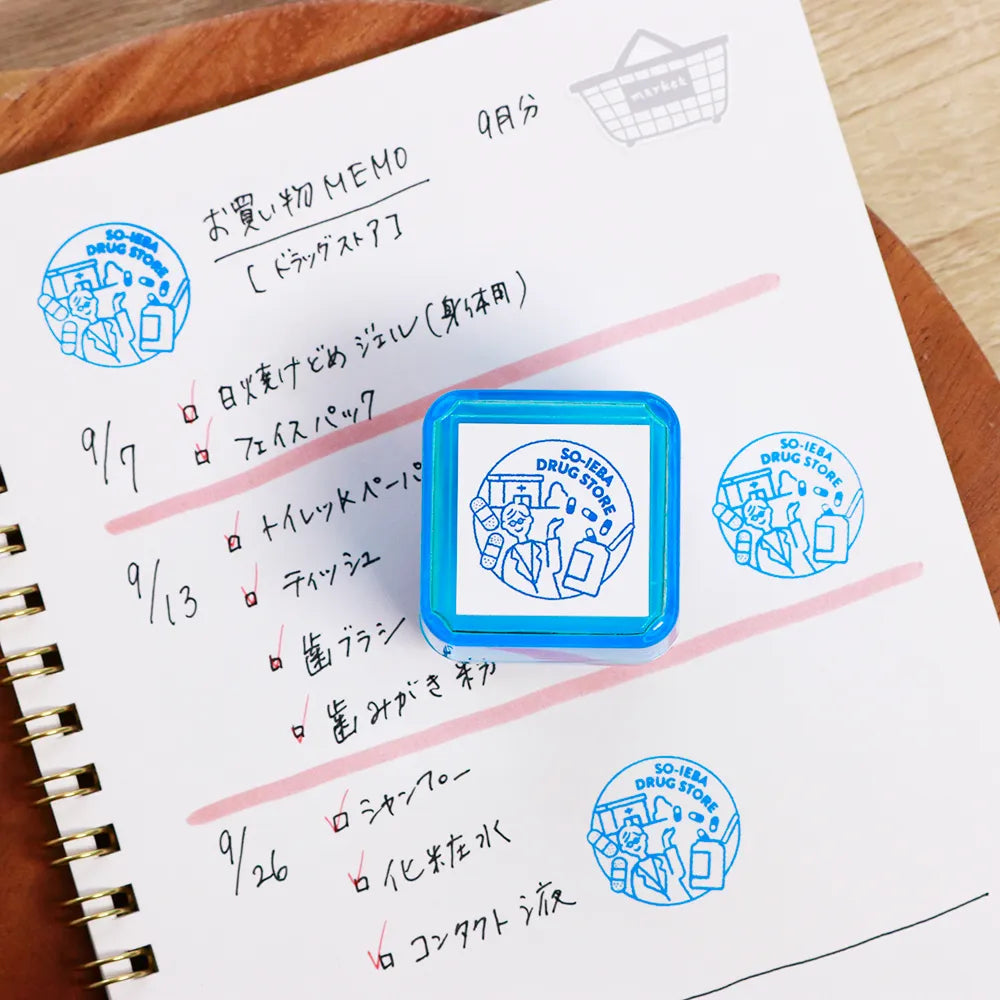 market
9月分
お買い物MEMO
[ドラッグストア]
SO-IEBA
DRUG STORE
9/7
日焼けどめジェル(身体用)
フェイスパック
9/13
トイレットペーパ
ティッシュ
歯ブラシ
歯みがき粉
SO-IEBA
DRUG STORE
SO-IEBA
DRUG STORE
9/26
シャンプー
化粧水
コンタクト液
SO-IEBA
DRUG STORE